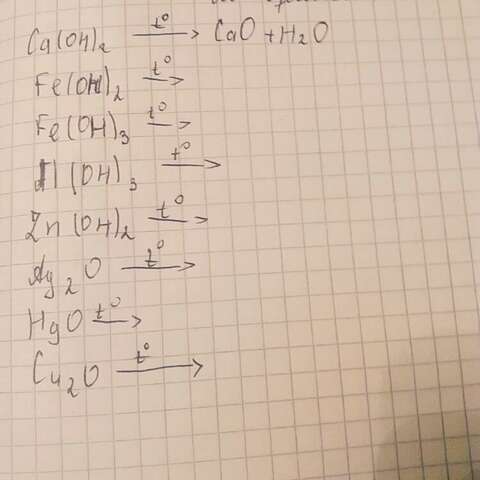 Ca(OH)₂ —t°→ CaO + H₂O
Fe(OH)₂ —t°→
Fe(OH)₃ —t°→
Al(OH)₃ —t°→
Zn(OH)₂ —t°→
Ag₂O —t°→
HgO —t°→
Cu₂O —t°→